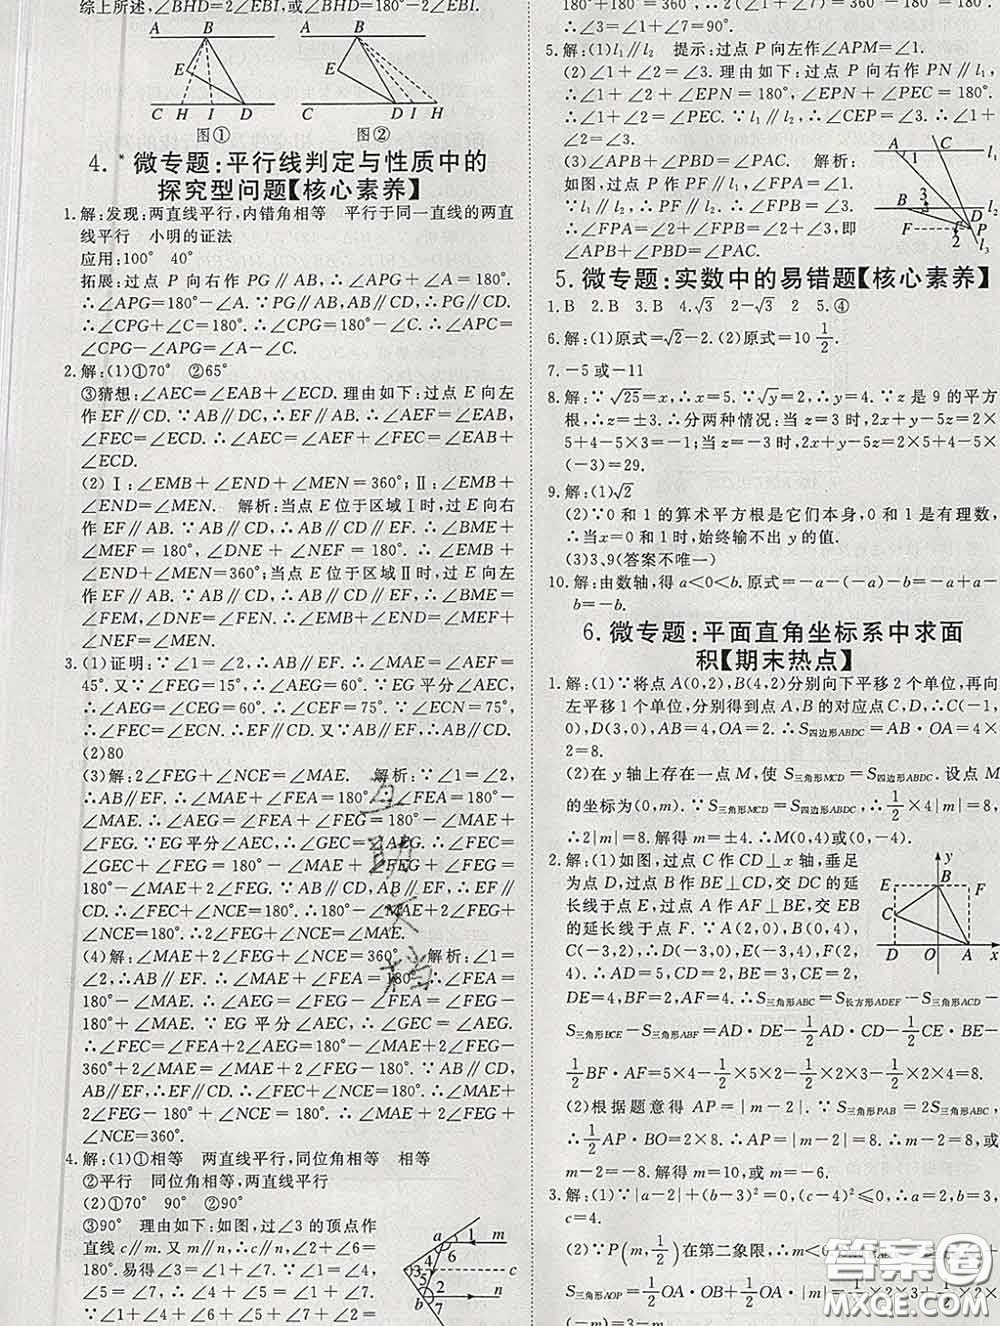 综上所述,∠BHD=2∠EBI,或∠BHD=180°-2∠EBI.
A B
E
C H I D
图①
A B
E
C D I H
图②
4. 微专题:平行线判定与性质中的
探究型问题【核心素养】
1.解:发现:两直线平行,内错角相等 平行于同一直线的两直
线平行 小明的证法
应用:100° 40°
拓展:过点 P 向右作 PG∥AB,∴∠APG+∠A=180°.
∴∠APG=180°-∠A. ∵AB∥CD,∴PG∥CD.
∴∠CPG+∠C=180°.∴∠CPG=180°-∠C.∴∠APC=
∠CPG-∠APG=∠A-∠C.
2.解:(1)①70° ②65°
③猜想:∠AEC=∠EAB+∠ECD.理由如下:过点 E 向左
作 EF∥CD.∵AB∥DC,∴EF∥AB.∴∠AEF=∠EAB,
∠FEC=∠ECD.∴∠AEC=∠AEF+∠FEC=∠EAB+
∠ECD.
(2)Ⅰ:∠EMB+∠END+∠MEN=360°;Ⅱ:∠EMB+
∠END=∠MEN. 解析:当点 E 位于区域Ⅰ时,过 E 向右
作 EF∥AB. ∵AB∥CD,∴AB∥CD∥EF.∴∠BME+
∠MEF=180°,∠DNE+∠NEF=180°.∴∠EMB+
∠END+∠MEN=360°;当点 E 位于区域Ⅱ时,过 E 向左
作 EF∥AB.∵AB∥CD,∴AB∥CD∥EF.∴∠BME=
∠FEM,∠DNE=∠FEN.∴∠EMB+∠END=∠MEF+
∠NEF=∠MEN.
3.(1)证明:∵∠1=∠2,∴AB∥EF.∴∠MAE=∠AEF=
45°.又∵∠FEG=15°,∴∠AEG=60°.∵EG 平分∠AEC,
∴∠CEG=∠AEG=60°.∴∠FEC=75°.∵∠ECN=75°,
∴∠FEC=∠ECN.∴EF∥CD.又∵AB∥EF,∴AB∥CD.
(2)80
(3)解:2∠FEG+∠NCE=∠MAE. 解析:∵∠1=∠2,
∴AB∥EF.∴∠MAE+∠FEA=180°.∴∠FEA=180°-
∠MAE.∴∠AEG=∠FEA+∠FEG=180°-∠MAE+
∠FEG.∵EG 平分∠AEC,∴∠GEC=∠AEG.∴∠FEC=
∠GEC+∠FEG=180°-∠MAE+∠FEG+∠FEG=180°
-∠MAE+2∠FEG.∵AB∥CD,AB∥EF,∴EF∥CD.
∴∠FEC+∠NCE=180°.∴180°-∠MAE+2∠FEG+
∠NCE=180°.∴2∠FEG+∠NCE=∠MAE.
(4)解:∠MAE+2∠FEG+∠NCE=360°. 解析:∵∠1=
∠2,∴AB∥EF.∴∠MAE+∠FEA=180°.∴∠FEA
=180°-∠MAE.∴∠AEG=∠FEG-∠FEA=∠FEG
-180°+∠MAE.∵EG 平分∠AEC,∴∠GEC=∠AEG.
∴∠FEC=∠FEA+2∠AEG=180°-∠MAE+2∠FEG-
360°+2∠MAE=∠MAE+2∠FEG-180°.∵AB∥CD,
AB∥EF,∴EF∥CD.∴∠FEC+∠NCE=180°.∴∠MAE
+2∠FEG-180°+∠NCE=180°.∴∠MAE+2∠FEG+
∠NCE=360°.
4.解:(1)①相等 两直线平行,同位角相等 相等
②平行 同位角相等,两直线平行
(2)①70° 90° ②90°
③90° 理由如下:如图,过∠3 的顶点作
直线 c∥m.又 m∥n,∴c∥n.∴∠6+∠7=
180°.易得∠1=∠4,
∠5=∠7.∴∠1+∠7=
∵∠1+∠4+∠6+
a 1 m
6
4
3 c
5
2 n
b 7
180°+180°=360°,
∴∠3=∠1+∠7=90°.
5.解:(1)l₁∥l₂ 提示:过点 P 向左作∠APM=∠1.
(2)∠1+∠2=∠3.理由如下:过点 P 向右作 PN∥l₁.
∴∠1+∠2+∠EPN=180°,∠3+∠FPN=180°.
∵l₁∥l₂,
∴∠3+∠EPN=180°.∴∠1+∠2=∠3.
(3)∠APB+∠PBD=∠PAC. 解析:
如图,过点 P 作 PF∥l₁.∴∠FPA=∠1.
∵l₁∥l₂,∴PF∥l₂.∴∠FPB=∠3.
∴∠FPA=∠2+∠FPB=∠2+∠3,即
∠APB+∠PBD=∠PAC.
A C
1 l₁
3
B D
F P
2
l₃
5. 微专题:实数中的易错题【核心素养】
1.B 2.B 3.B 4.√3 2-√3 2 5.④
6.解:(1)原式=√2-2.(2)原式=10 1/2.
7.-5或-11
8.解:∵√25=x,∴x=5.∵√y=2,∴y=4.∵z 是 9 的平方
根,∴z=±3.∴分两种情况:当 z=3 时,2x+y-5z=2×
5+4-5×3=-1;当 z=-3 时,2x+y-5z=2×5+4-5×
(-3)=29.
9.解:(1)√2
(2)∵0 和 1 的算术平方根是它们本身,0 和 1 是有理数,
∴当x=0 和 1 时,始终输不出 y 的值.
(3)3,9(答案不唯一)
10.解:由数轴,得 a<0<b.原式=-a-(-a)-b=-a+a-
b=-b.
6. 微专题:平面直角坐标系中求面
积【期末热点】
1.解:(1)∵将点 A(0,2),B(4,2)分别向下平移 2 个单位,再向
左平移 1 个单位,分别得到点 A,B 的对应点C,D,∴C(-1,
0),D(3,0),AB=4,OA=2.∴S四边形ABDC=AB·OA=4×
2=8.
(2)在 y 轴上存在一点 M,使 S三角形MCD=S四边形ABDC.设点 M
的坐标为(0,m).∵S三角形MCD=S四边形ABDC,∴1/2×4|m|=8,
∴2|m|=8.解得 m=±4.∴M(0,4)或(0,-4).
2.解:(1)如图,过点 C 作 CD⊥x 轴,垂足
为点 D,过点 B 作 BE⊥CD,交 DC 的延
长线于点 E,过点 A 作 AF⊥BE,交 EB
的延长线于点 F.∵A(2,0),B(0,4),
C(-3,2),∴D(-3,0),E(-3,4),F(2,4).
y
E B F
C
D O A x
DE=4,BF=2,AF=4.∴S三角形ABC=S长方形ADEF-S三角形ACD-
S三角形BCE-S三角形ABF=AD·DE-1/2AD·CD-1/2CE·BE-
1/2BF·AF=5×4-1/2×5×2-1/2×2×3-1/2×2×4=8.
(2)根据题意得 AP=|m-2|.∵S三角形PAB=2S三角形ABC,
∴1/2AP·BO=2×8.∴AP=|m-2|=8.∴m-2=8 或
m-2=-8.解得 m=10,或 m=-6.
3.解:(1)∵|a-2|+(b-3)²=0,(c-4)²≤0,∴a=2,b=3,
c=4.
(2)∵P(m,1/2)在第二象限,∴m<
S三角形AOP=1/2OA·OB+1/2OA·
(-m)=3-m.
答案圈
MXQE.COM